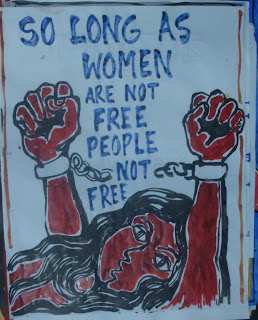 SO LONG AS
WOMEN
ARE NOT
FREE
PEOPLE
NOT
FREE